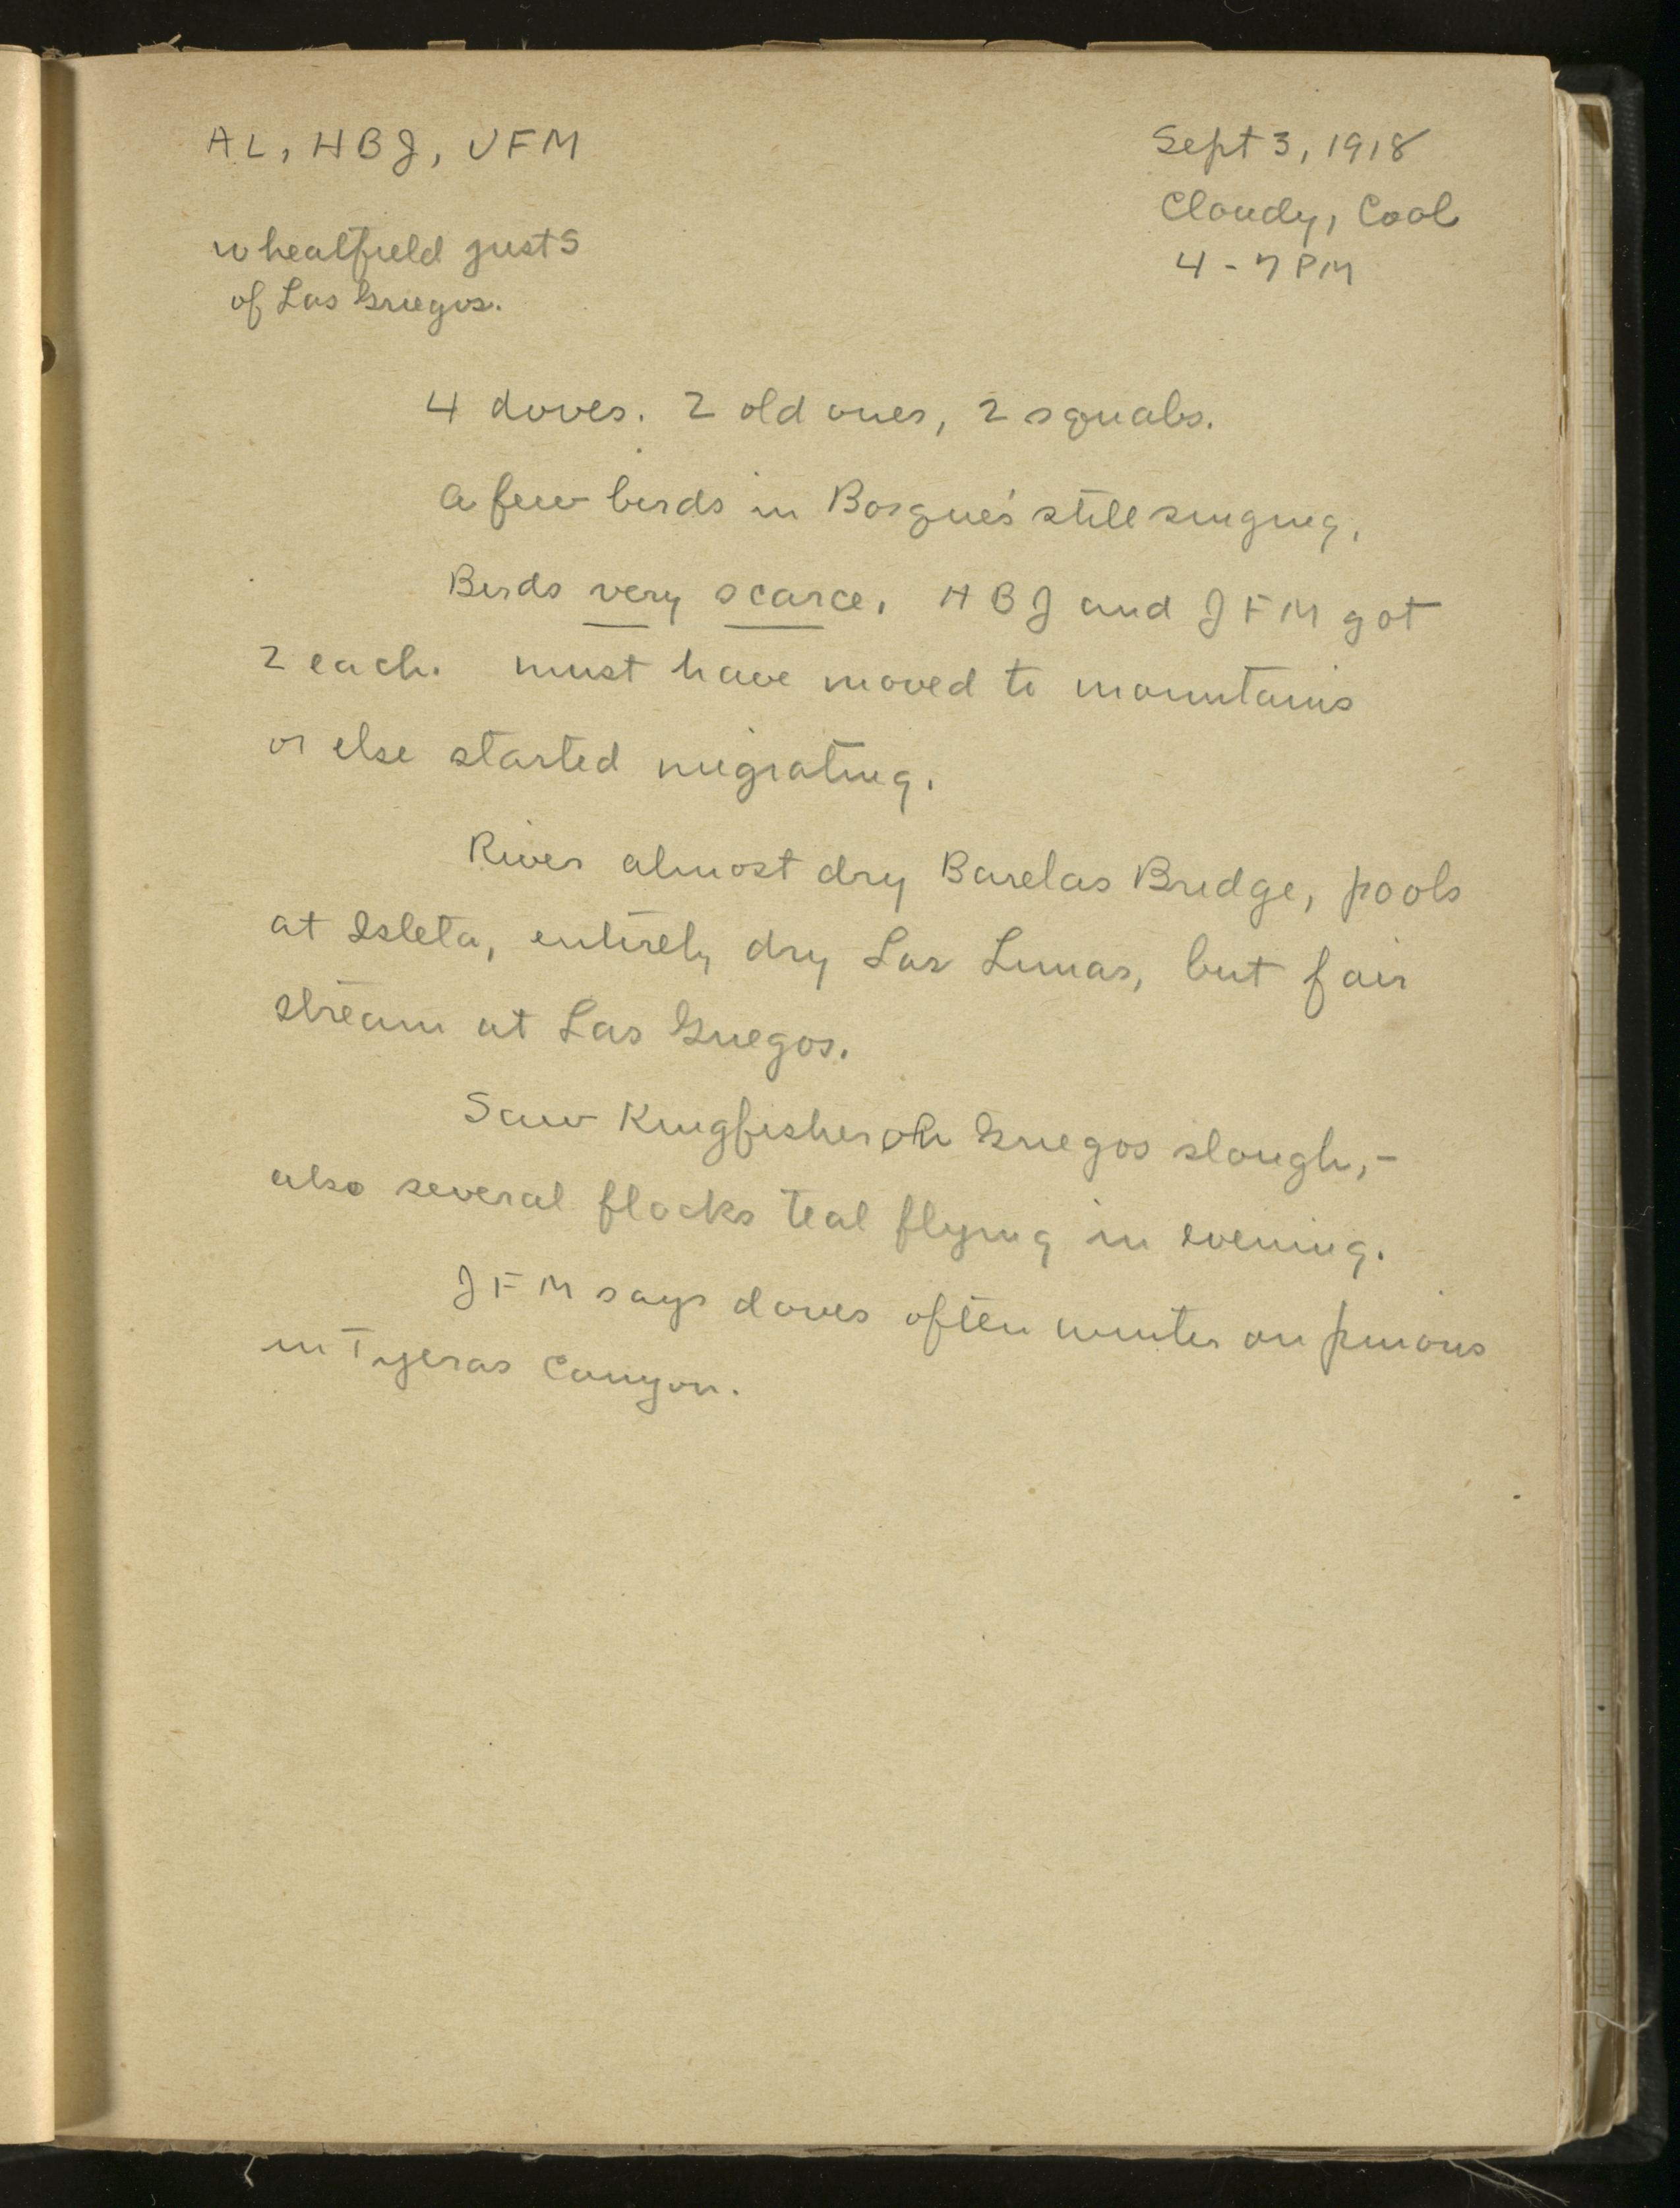 AL, HBJ, JFM
Sept 3, 1918
Cloudy, Cool
4-7 PM
Wheatfield just S
of Los Griegos.
4 doves. 2 old ones, 2 squabs.
A few birds in Bosques still singing.
Birds very scarce. HBJ and JFM got
2 each. must have moved to mountains
or else started migrating.
River almost dry Barelas Bridge, pools
at Isleta, entirely dry Los Lunas, but fair
stream at Los Griegos.
Saw Kingfisher on Griegos slough,-
also several flocks teal flying in evening.
JFM says doves often winter on pinons
in Tyeras Canyon.